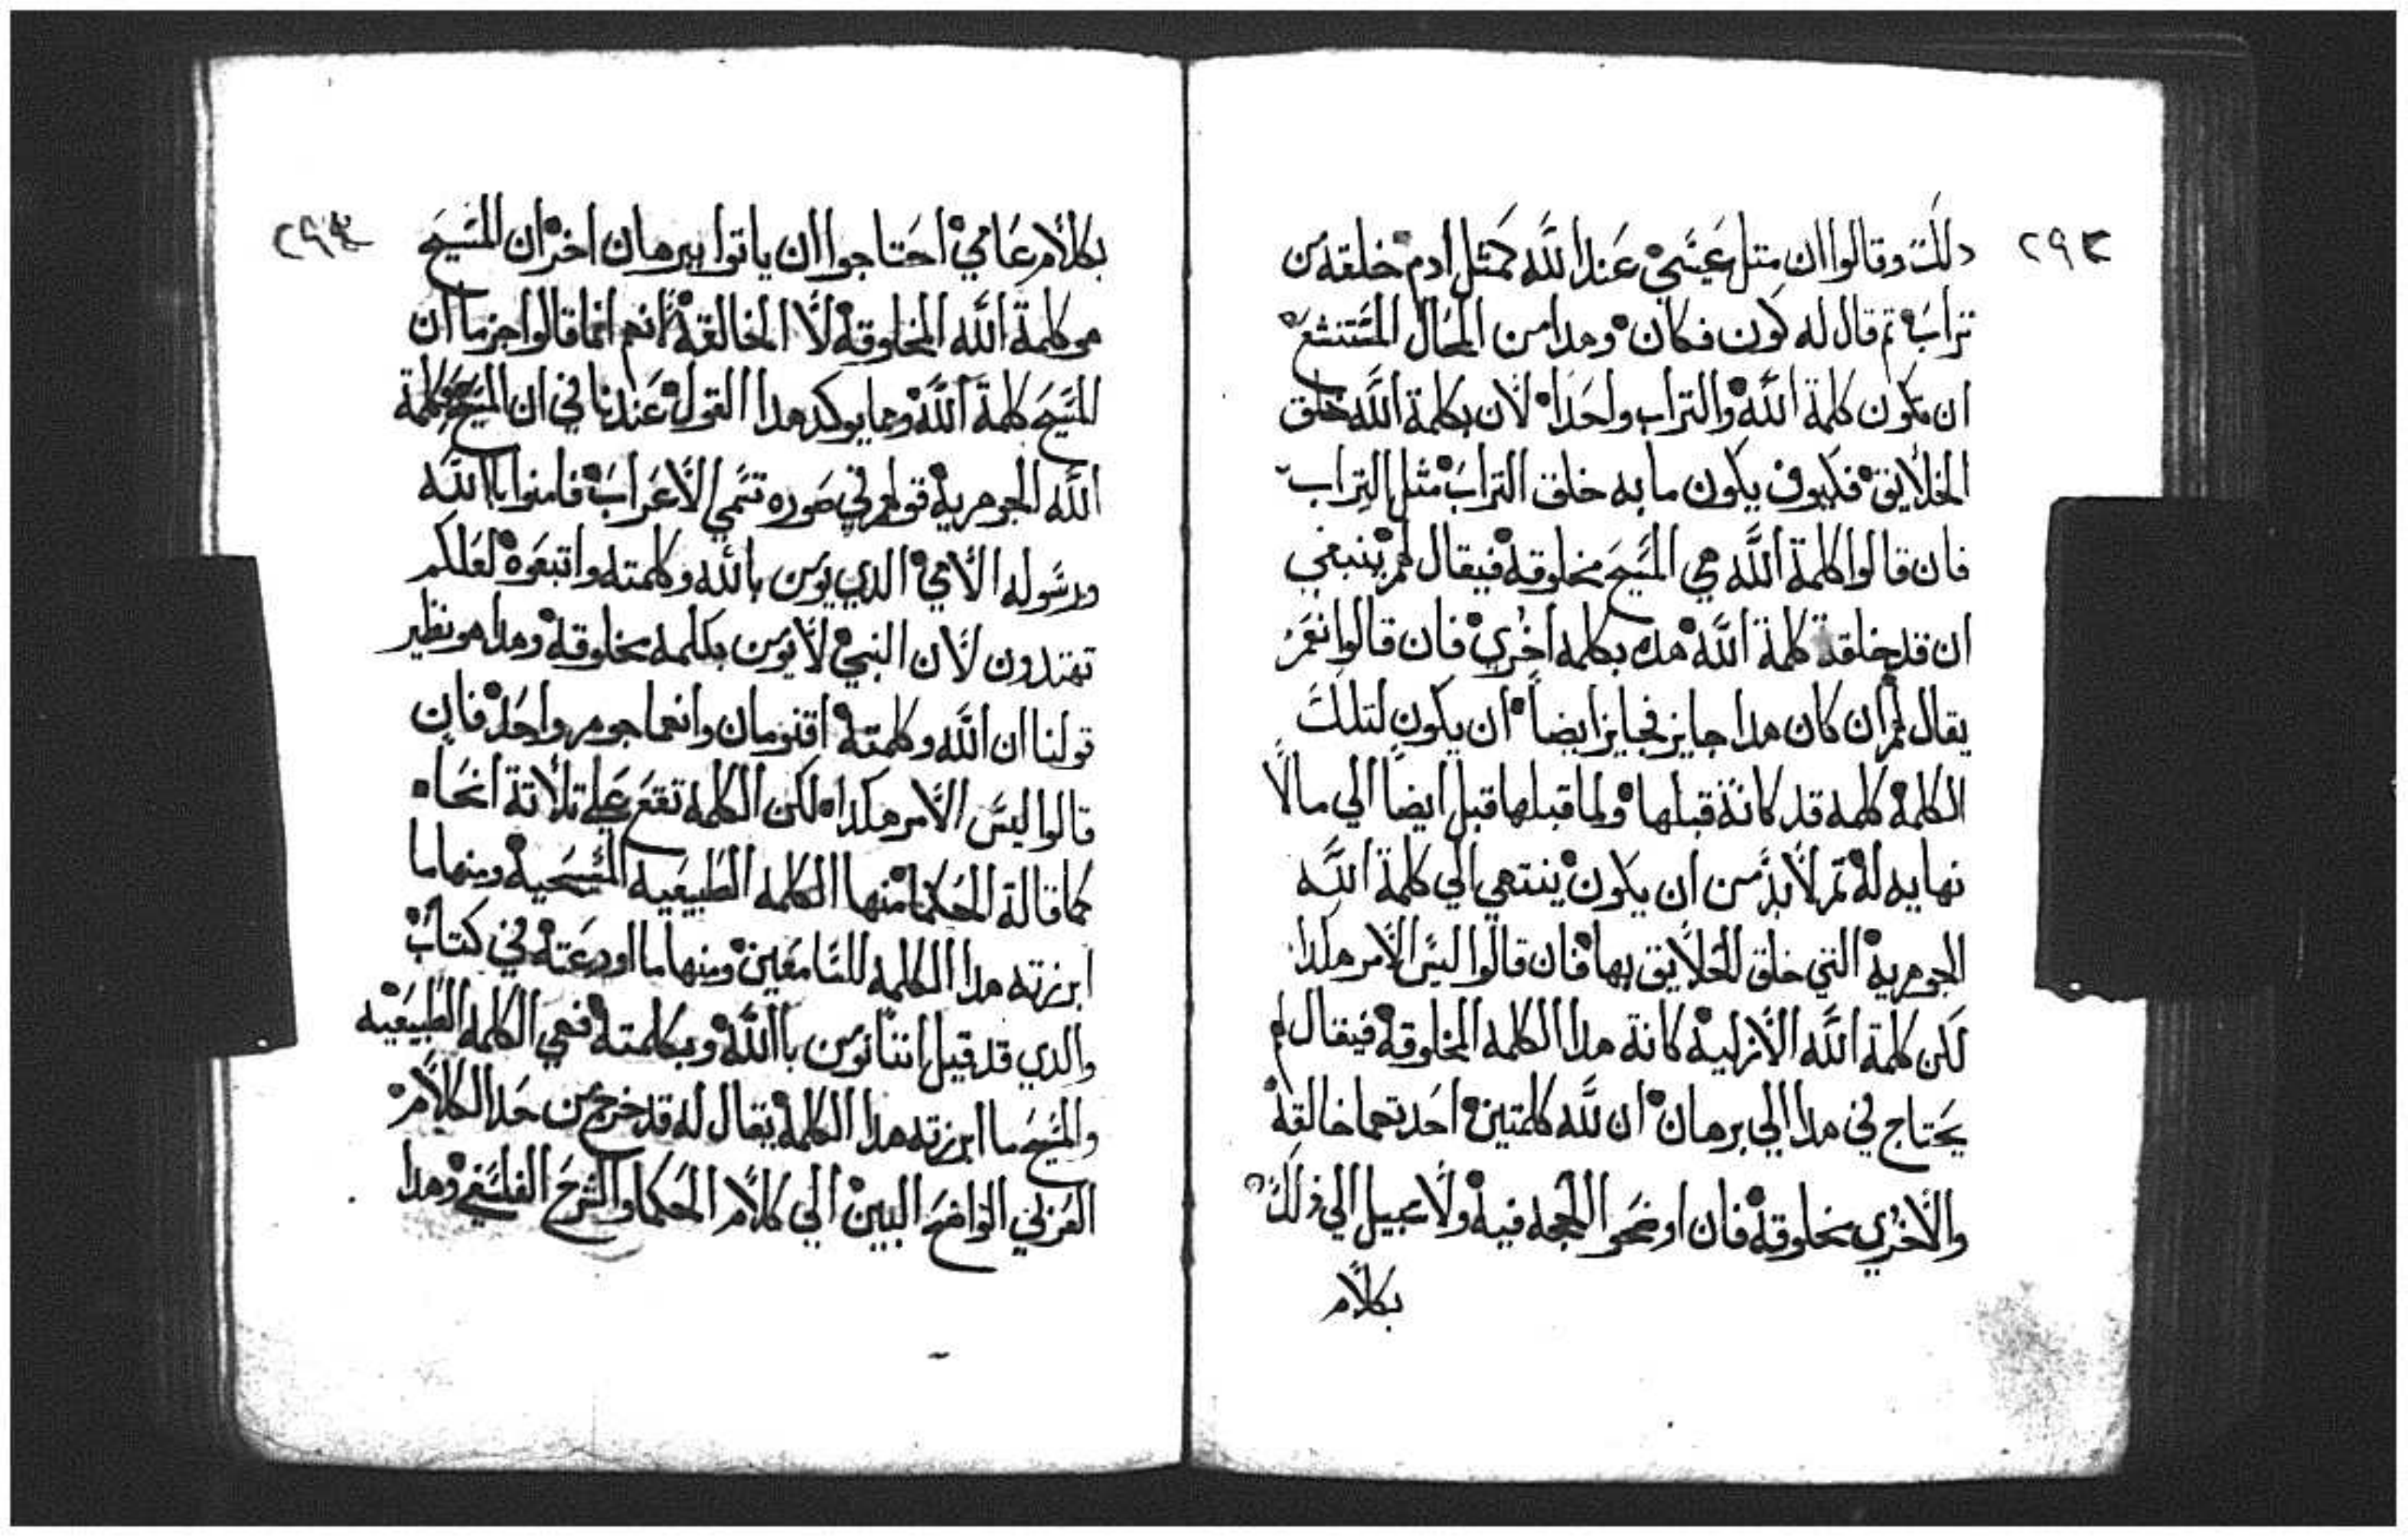 ٢٩٣
دلك وقالوا ان متل عيسي عند الله كمتل ادم خلقه من
تراب تم قال له كون فكان وهدا من المحال المستنشع
ان تكون كلمة الله والتراب واحدا لان بكلمة الله خلق
الخلايق فكيوف يكون ما به خلق التراب مثل التراب
فان قالوا كلمة الله هي المسيح مخلوقة فيقال لهم ينبغي
ان قد خلقة كلمة الله هده بكلمه اخري فان قالوا نعم
يقال لهم ان كان هدا جايز فجايز ايضاً ان يكون لتلك
الكلمة كلمه قد كانة قبلها ولما قبلها قبل ايضاً الي ما لا
نهايه له تم لا بد من ان يكون ينتهي الي كلمة الله
الجوهرية التي خلق الخلايق بها فان قالوا ليس الامر هكدا
لكن كلمة الله الازلية كانة هدا الكلمه المخلوقة فيقال لهم
يحتاج في هدا الي برهان ان لله كلمتين احدتهما خالقة
والاخري مخلوقة فان اوضحو الحجه فيه ولا سبيل الي ذلك
بكلام
٢٩٤
بكلام عامي احتاجوا ان ياتوا ببرهان اخر ان المسيح
هو كلمة الله المخلوقة لا الخالقة انهم انما قالوا جزما ان
المسيح كلمة الله ومما يوكد هدا القول عندنا في ان المسيح هو كلمة
الله الجوهرية قولهم في صوره تسمي الاعراب فامنوا باالله
ورسوله الامي الدي يومن بالله وكلمته واتبعوه لعلكم
تهتدون لان النبي لا يومن بكلمه مخلوقة وهدا هو نظير
قولنا ان الله وكلمتة اقنومان وانهما جوهر واحد فان
قالوا ليس الامر هكدا لكن الكلمه تقع علي تلاتة انحاء
كما قالة الحكما منها الكلمه الطبيعيه المسحية ومنها ما
ابرزته هدا الكلمه للسامعين ومنها ما اودعته في كتاب
والدي قد قيل اننا نومن باالله وبكلمتة فهي الكلمه الطبيعيه
والمسيح ما ابرزته هدا الكلمة يقال له قد خرج من حد الكلام
العربي الواضح البين الي كلام الحكما والشرح الفلسفي وهدا